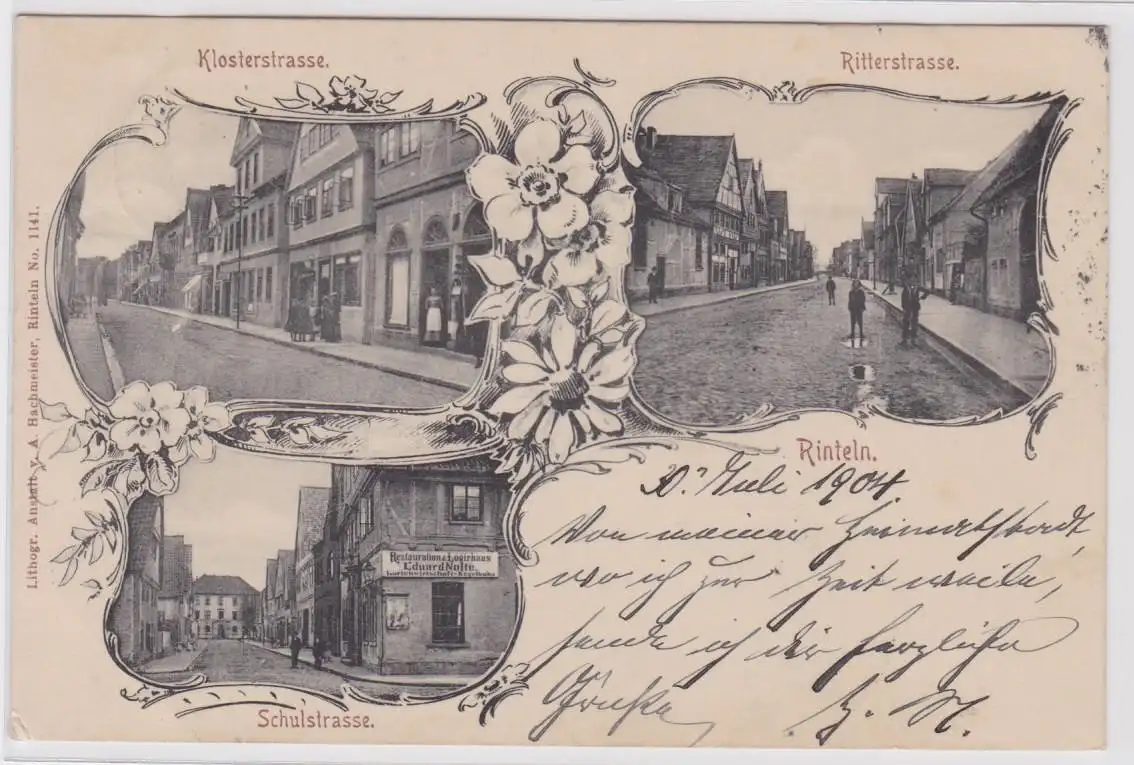 Klosterstrasse.
Ritterstrasse.
Lithogr. Anstalt v. A. Hachmeister, Rinteln No. 1141.
Rinteln.
30. Juli 1904
Von meiner Heimatstadt,
wo ich zur Zeit weile,
sende ich dir herzliche
Grüße
Restauration & Logirhaus
Eduard Nolte.
Gartenwirtschaft - Kegelbahn
Schulstrasse.